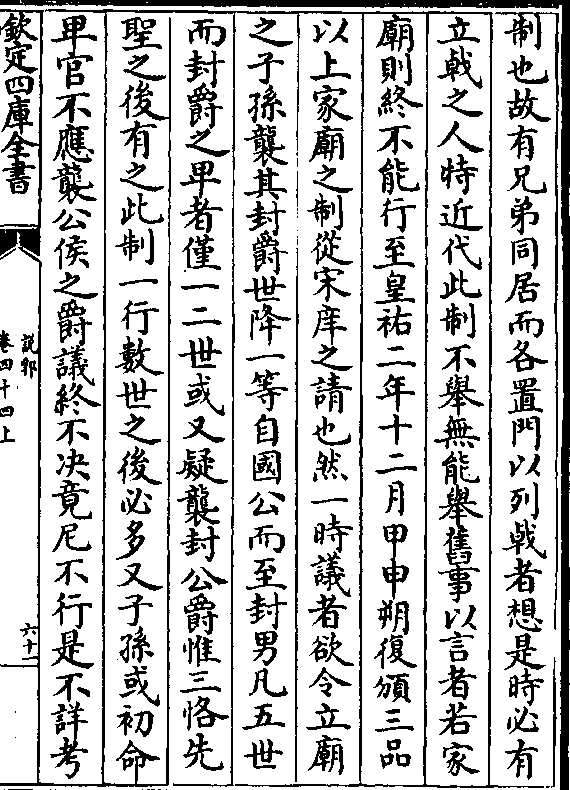 制也故有兄弟同居而各置門以列戟者想是時必有
立戟之人特近代此制不舉無能舉舊事以言者若家
廟則終不能行至皇祐二年十二月甲申朔復頒三品
以上家廟之制從宋庠之請也然一時議者欲令立廟
之子孫襲其封爵世降一等自國公而至封男凡五世
而封爵之甲者僅一二世或又疑襲封公爵惟三恪先
聖之後有之此制一行數世之後必多又子孫或初命
甲官不應襲公侯之爵議終不决竟尼不行是不詳考
欽定四庫全書
說郛
卷四十四上
六十一